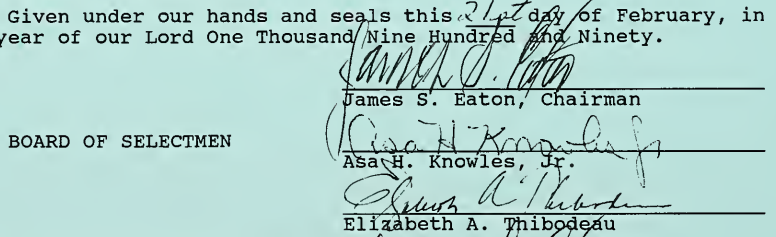 Given under our hands and seals this 21st day of February, in
year of our Lord One Thousand Nine Hundred and Ninety.
James S. Eaton
James S. Eaton, Chairman
BOARD OF SELECTMEN
Asa H Knowles Jr
Asa H. Knowles, Jr.
Elizabeth A Thibodeau
Elizabeth A. Thibodeau